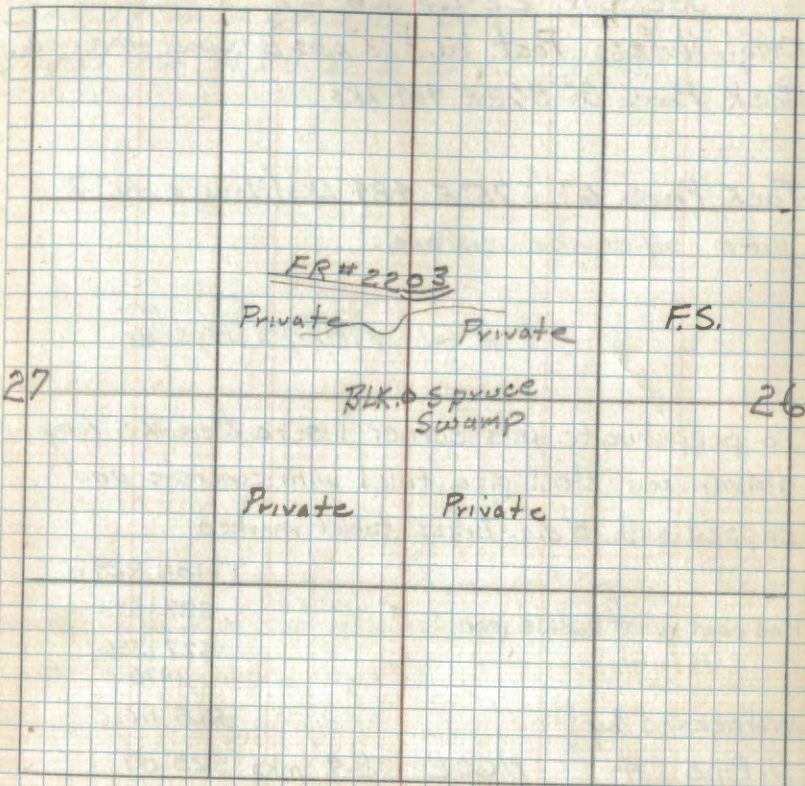 FR#2203
Private Private F.S.
27 BLK. Spruce 26
Swamp
Private Private